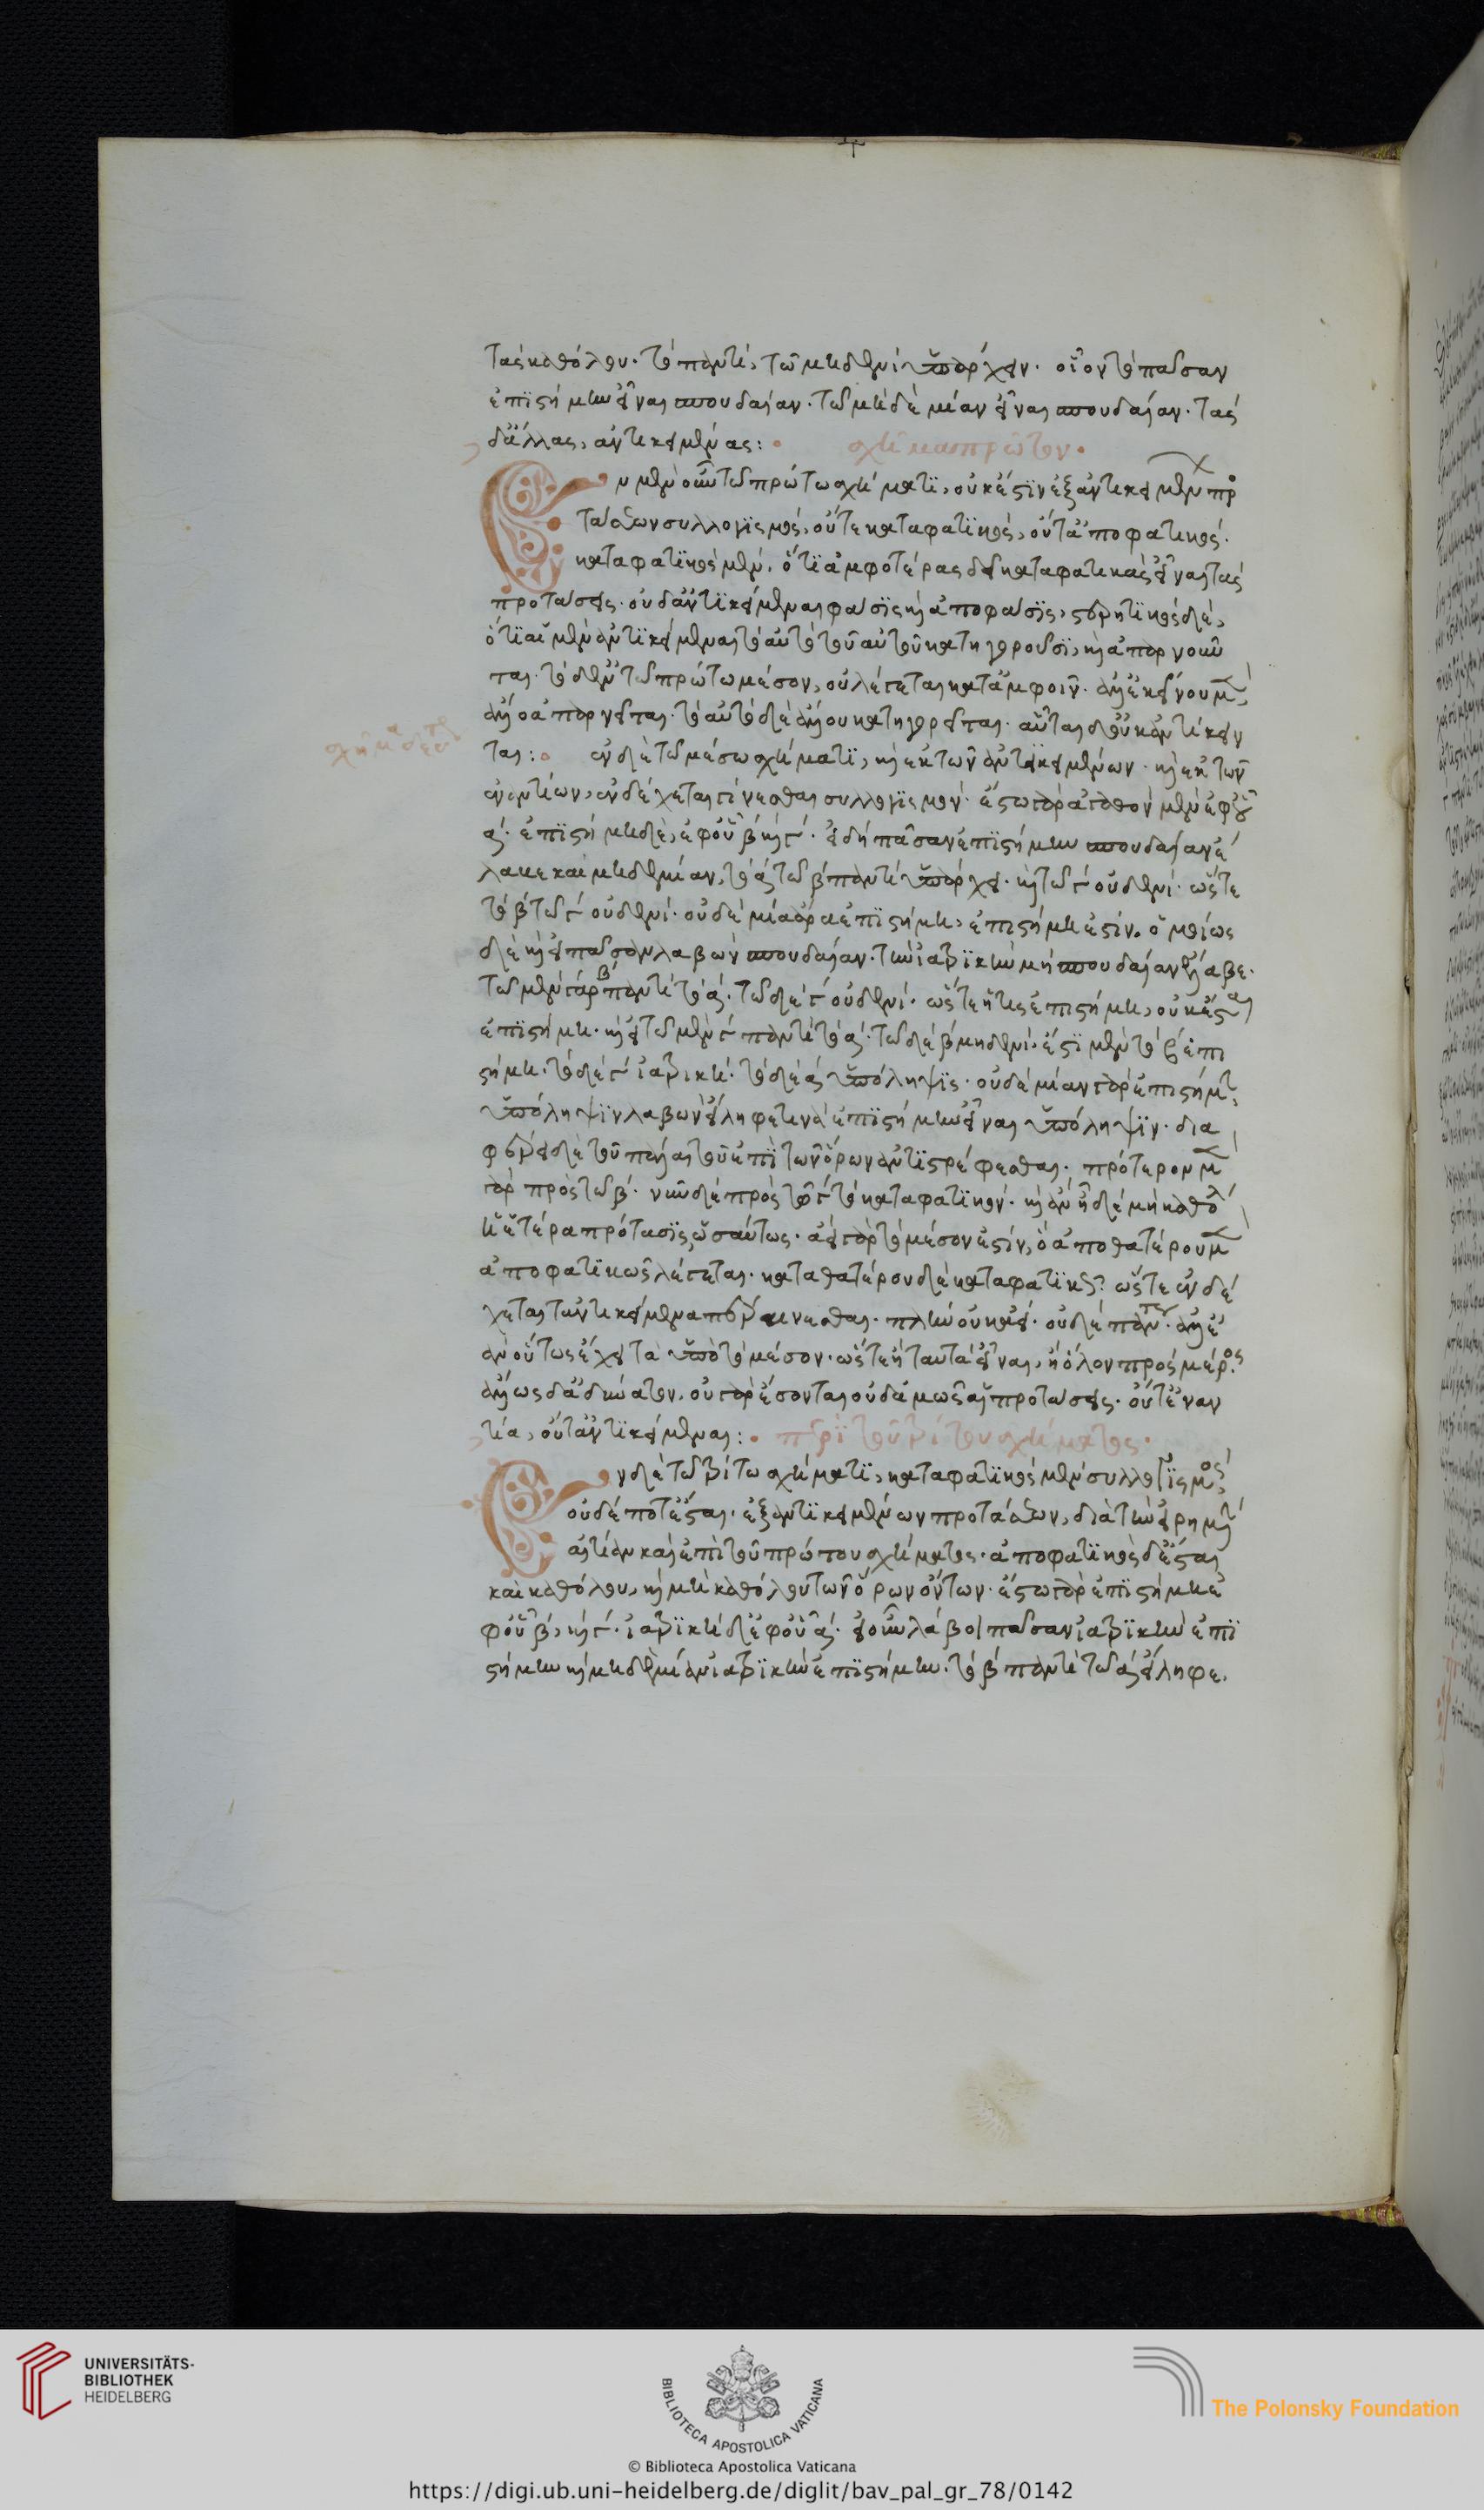 τὰς καθόλου· τὸ παντὶ, τῶ μηδενὶ ὑπάρχειν· οἷον τὸ πᾶσαν
ἐπιστήμην εἶναι σπουδαίαν· τῶ μηδὲ μίαν εἶναι σπουδαίαν· τὰς
δ' ἄλλας, ἀντικειμένας :
σχῆμα πρῶτον.
Εν μὲν οὖν τῶ πρώτω σχήματι, οὐκ ἔστιν ἐξ ἀντικειμένων προ
τάσεων συλλογισμός, οὔτε καταφατικός, οὔτ' ἀποφατικός.
καταφατικὸς μὲν, ὅτι ἀμφοτέρας δεῖ καταφατικὰς εἶναι τὰς
προτάσεις· οὐδ' ἀντικείμεναι φάσις καὶ ἀπόφασις, στερητικὸς δὲ,
ὅτι αἱ μὲν ἀντικείμεναι τὸ αὐτὸ τοῦ αὐτοῦ κατηγοροῦσι, καὶ ἀπαρνοῦν
ται· τὸ δ' ἐν τῶ πρώτω μέσον, οὐ λέγεται κατ' ἀμφοῖν· ἀλλ' ἐκείνου μὲν
ἄλλο ἀπαρνεῖται· τὸ αὐτὸ δὲ ἄλλου κατηγορεῖται· αὗται δ' οὐκ ἀντίκειν
σχῆμα δεύτερον
ται : ἐν δὲ τῶ μέσω σχήματι, καὶ ἐκ τῶν ἀντικειμένων· καὶ ἐκ τῶν
ἐναντίων, ἐνδέχεται γίνεσθαι συλλογισμόν· ἔστω γὰρ ἀγαθὸν μὲν ἐφ' οὗ
α· ἐπιστήμη δὲ, ἐφ' οὗ β καὶ γ· εἰ δὴ πᾶσαν ἐπιστήμην σπουδαίαν ἔ
λαβε καὶ μηδεμίαν, τὸ α τῶ β παντὶ ὑπάρχει· καὶ τῶ γ οὐδενὶ· ὥστε
τὸ β τῶ γ οὐδενὶ· οὐδὲ μία ἄρα ἐπιστήμη, ἐπιστήμη ἐστίν. ὁμοίως
δὲ καὶ εἰ πᾶσαν λαβὼν σπουδαίαν· τὴν ἰατρικὴν μὴ σπουδαίαν ἔλαβε.
τῶ μὲν γὰρ β παντὶ τὸ α· τῶ δὲ γ οὐδενὶ· ὥστε ἥ τις ἐπιστήμη, οὐκ ἔσται
ἐπιστήμη· καὶ εἰ τῶ μὲν γ παντὶ τὸ α· τῶ δὲ β μηδενὶ· ἔστι μὲν τὸ β ἐπι
στήμη· τὸ δὲ γ ἰατρική· τὸ δὲ α ὑπόληψις· οὐδὲ μίαν γὰρ ἐπιστήμην
ὑπόληψιν λαβὼν εἴληφε τινὰ ἐπιστήμην εἶναι ὑπόληψιν· δια
φέρει δὲ τοῦ πάλαι τοῦ ἐπὶ τῶν ὅρων ἀντιστρέφεσθαι· πρότερον μὲν
γὰρ πρὸς τῶ β· νῦν δὲ πρὸς τῶ γ τὸ καταφατικόν· καὶ ἂν ᾖ δὲ μὴ καθόλου
ἡ ἑτέρα πρότασις, ὡσαύτως· ἀεὶ γὰρ τὸ μέσον ἐστίν, ὃ ἀπὸ θατέρου μὲν
ἀποφατικῶς λέγεται· κατὰ θατέρου δὲ καταφατικῶς· ὥστε ἐνδέ
χεται τἀντικείμενα περαίνεσθαι· πλὴν οὐκ ἀεὶ· οὐδὲ πάντως· ἀλλ' ἐ
ὰν οὕτως ἔχει τὰ ὑπὸ τὸ μέσον· ὥστε ἢ ταυτὰ εἶναι, ἢ ὅλον πρὸς μέρος
ἄλλως δ' ἀδύνατον. οὐ γὰρ ἔσονται οὐδαμῶς αἱ προτάσεις· οὔτ' ἐναν
τία, οὔτ' ἀντικείμεναι : περὶ τοῦ τρίτου σχήματος.
Εν δὲ τῶ τρίτω σχήματι, καταφατικὸς μὲν συλλογισμὸς,
οὐδέποτ' ἔσται· ἐξ ἀντικειμένων προτάσεων, διὰ τὴν εἰρημένην
αἰτίαν καὶ ἐπὶ τοῦ πρώτου σχήματος. ἀποφατικὸς δ' ἔσται
καὶ καθόλου, καὶ μὴ καθόλου τῶν ὅρων ὄντων· ἔστω γὰρ ἐπιστήμη ἐ
φ' οὗ β, καὶ γ· ἰατρικὴ δ' ἐφ' οὗ α· εἰ οὖν λάβοι πᾶσαν ἰατρικὴν ἐπι
στήμην καὶ μηδεμίαν ἰατρικὴν ἐπιστήμην· τὸ β παντὶ τῶ α εἴληφε.
UNIVERSITÄTS-
BIBLIOTHEK
HEIDELBERG
BIBLIOTECA APOSTOLICA VATICANA
© Biblioteca Apostolica Vaticana
The Polonsky Foundation
https://digi.ub.uni-heidelberg.de/diglit/bav_pal_gr_78/0142